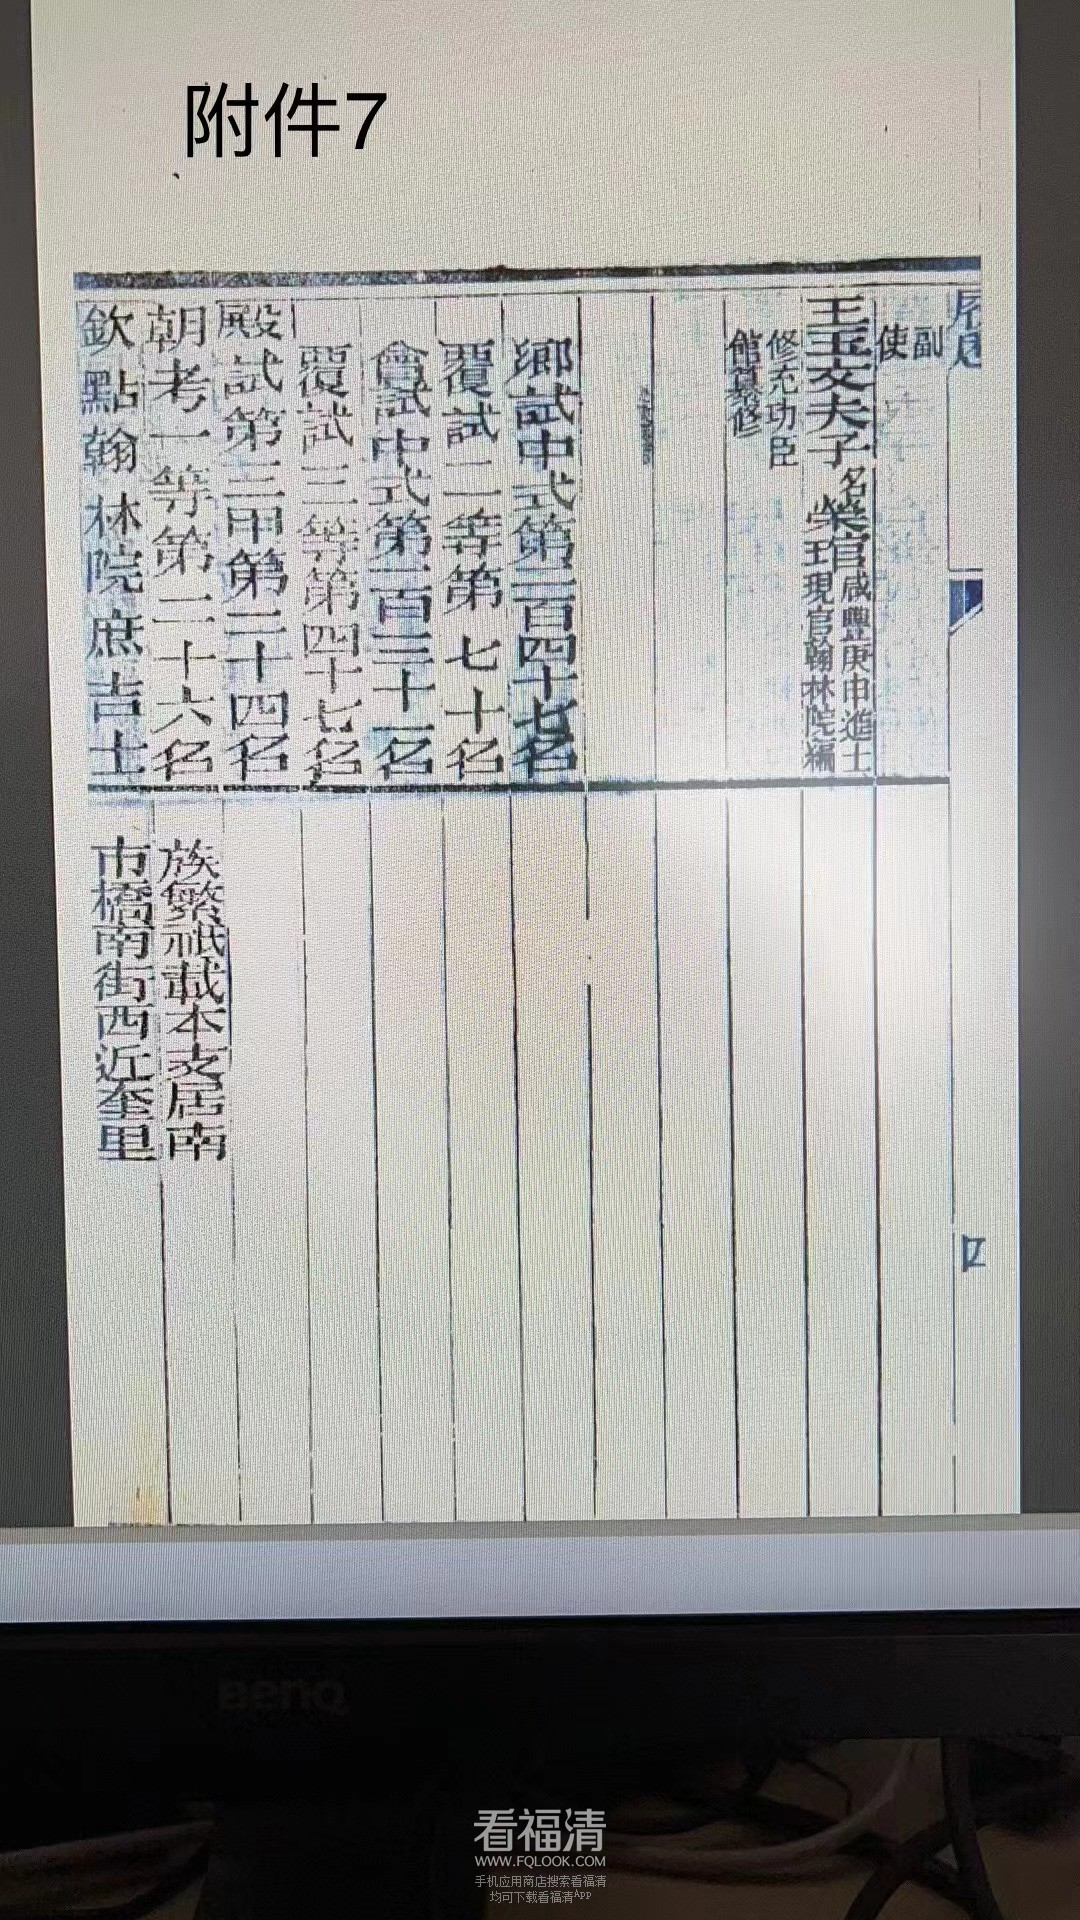 附件7
履歷
副使
王玉文夫子名榮琯咸豐庚申進士現官翰林院編
修充功臣館纂修
鄉試中式第二百四十七名
覆試二等第七十名
會試中式第一百三十一名
覆試三等第四十七名
殿試第三甲第二十四名
朝考一等第二十六名
欽點翰林院庶吉士
族繁祇載本支居南
市橋南街西近奎里
四
BenQ
看福清
WWW.FQLOOK.COM
手机应用商店搜索看福清
均可下载看福清App